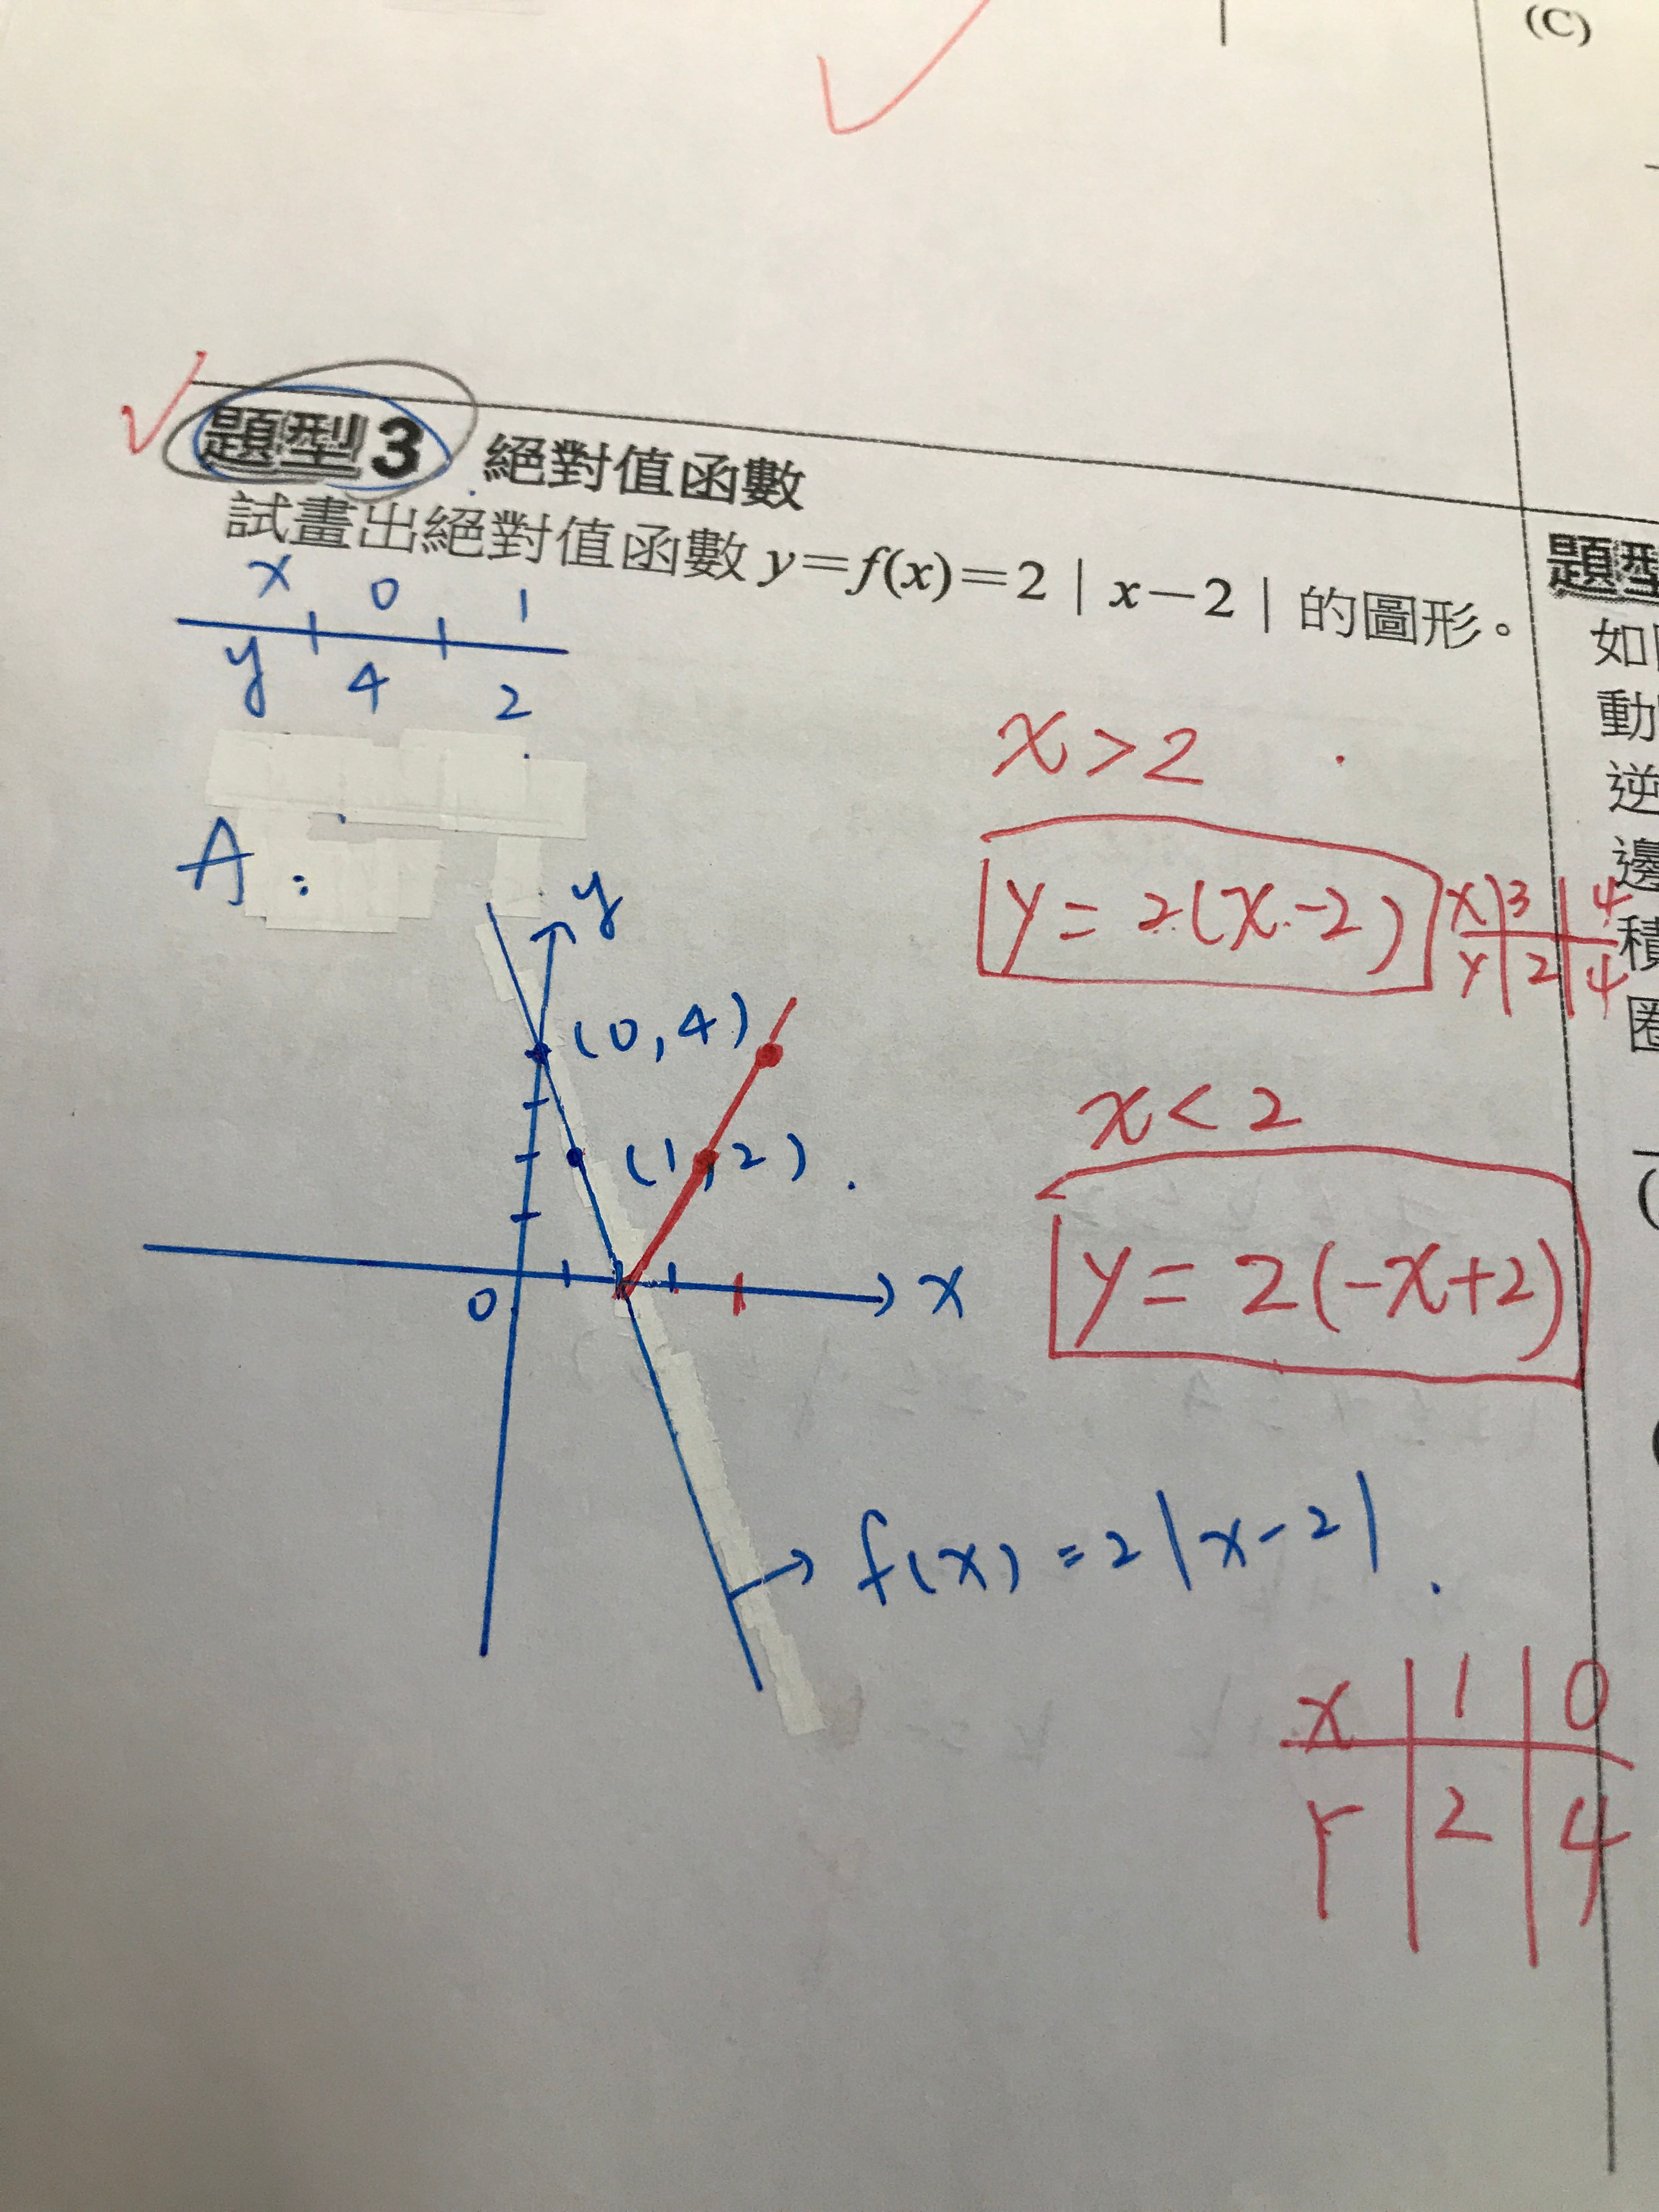 (C)
題型3 絕對值函數
試畫出絕對值函數 y=f(x)=2|x-2| 的圖形。
x 0 1
y 4 2
A:
x>2
y=2(x-2)
x 3 4
y 2 4
y
(0,4)
(1,2).
x<2
y=2(-x+2)
0
x
f(x)=2|x-2|.
x 1 0
y 2 4
題型
如
動
逆
邊
積
圈